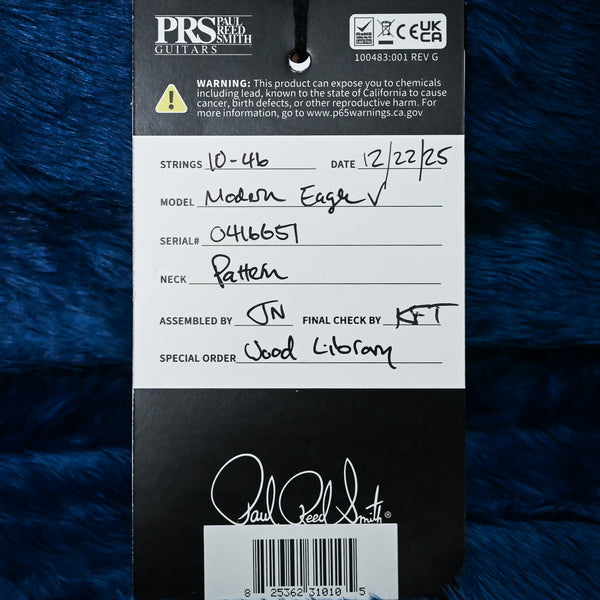 PRS PAUL REED SMITH
GUITARS
CE UK CA
100483:001 REV G
WARNING: This product can expose you to chemicals
including lead, known to the state of California to cause
cancer, birth defects, or other reproductive harm. For
more information, go to www.p65warnings.ca.gov
STRINGS 10-46 DATE 12/22/25
MODEL Modern Eagle V
SERIAL# 0416651
NECK Pattern
ASSEMBLED BY JN FINAL CHECK BY KFT
SPECIAL ORDER Wood Library
Paul Reed Smith®
8 25362 31010 5